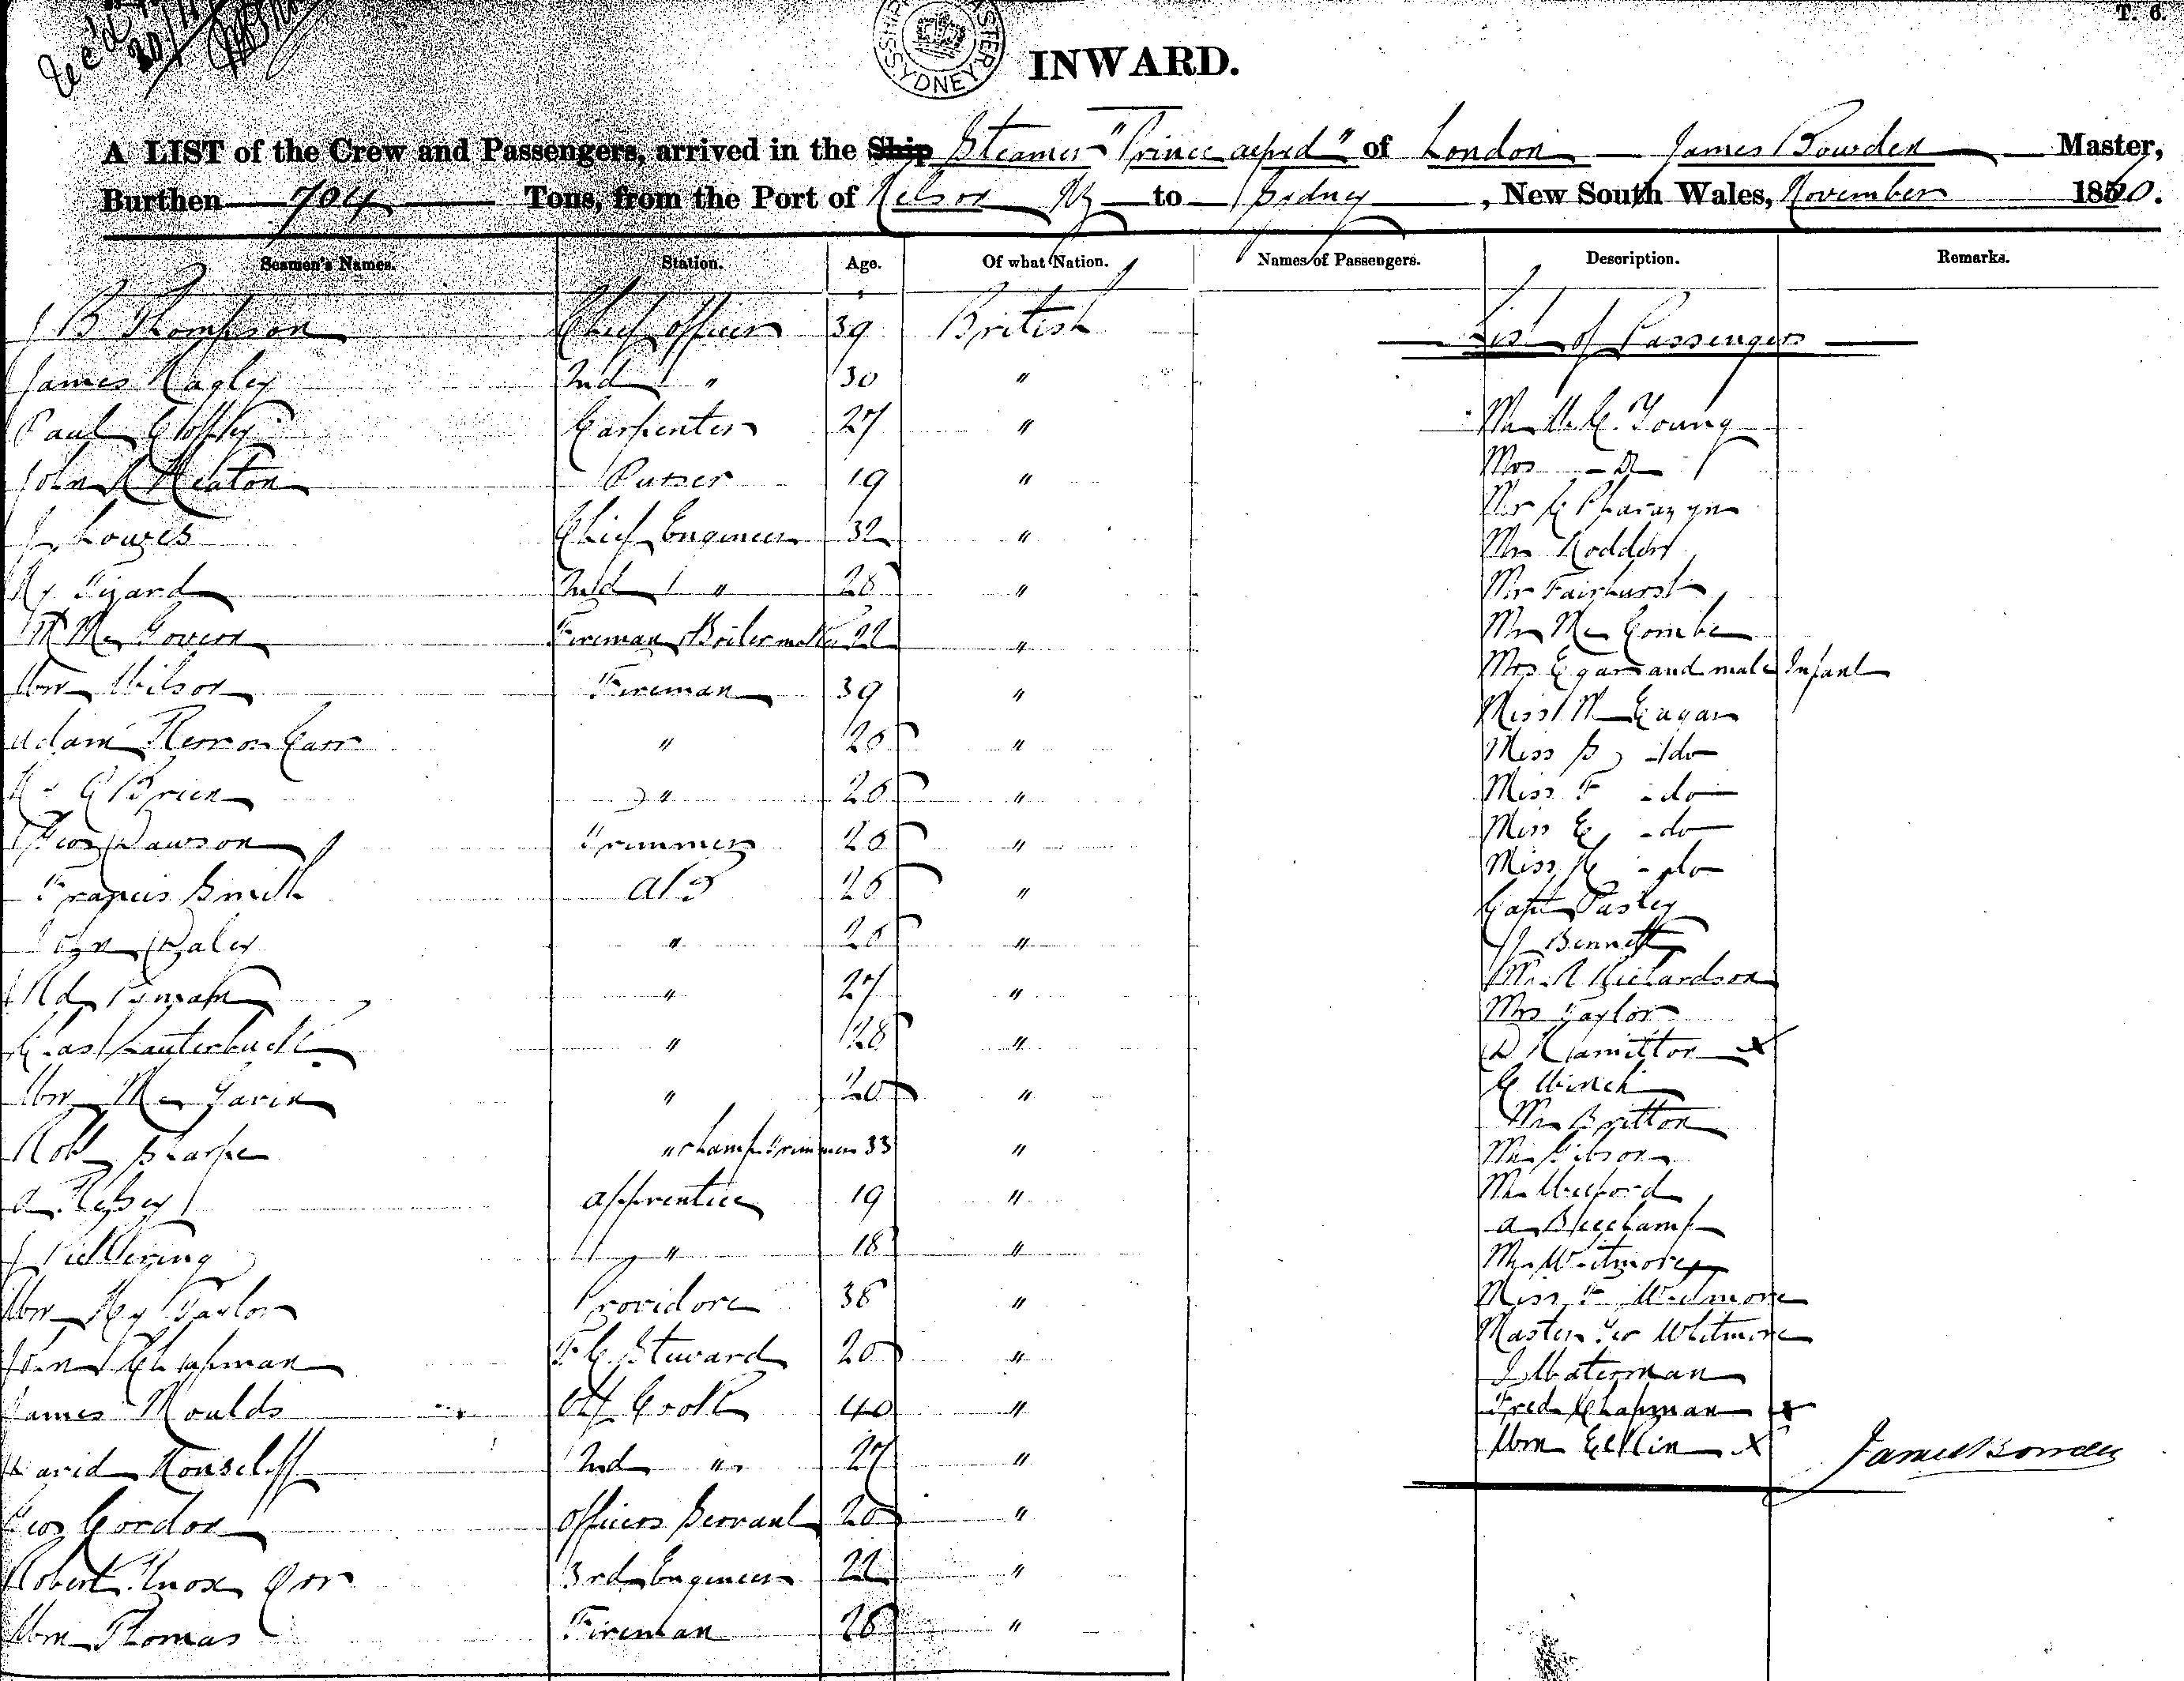 T. 6.
SYDNEY
INWARD.
A LIST of the Crew and Passengers, arrived in the Ship Steamer "Prince Alfred" of London James Bowden Master,
Burthen 704 Tons, from the Port of Nelson NZ to Sydney, New South Wales, November 1860.
Seamen's Names. Station. Age. Of what Nation. Names of Passengers. Description. Remarks.
J B Thompson Chief Officer 39 British
List of Passengers
James Hagley 2nd " 30 "
Paul Carpenter 27 " Young
John Heaton Purser 19 " Mrs - Do
J Lowes Chief Engineer 32 " Mr C Pharazyn
Hy Tizard 2nd " 28 " Mr Fairhurst
M Mc Govern Fireman & Boilermaker 22 " Mr Mc Combe
Wm Wilson Fireman 39 " Mrs Egan and male Infant
Adam Carr " " Miss M Eagan
O'Brien " " Miss S - do
Miss F - do
Geo Dawson Trimmer " Miss E - do
Francis Smith AB " Miss K - do
Capt Pasley
John Daley " " J Bennett
Rd " 27 " Mr R Richardson
Mrs Taylor
Chas Lauterbuck " 28 " D Hamilton x
Wm Mc Gavin " 20 " C Winch
Mr Britton
Robt Sharpe " & Lamp Trimmer 33 " Mr Gibson
A Apprentice 19 " Mr Welford
A Beechamp
J Pickering " 18 " Mr Witmore
Wm Hy Taylor Providore 38 " Miss F Widmore
Master Geo Whitmore
John Chapman F C Steward 20 " J Waterman
James Moulds Chf Cook 40 " Fred Chapman x
David Honscliff 2nd " 27 " Wm Elkin x James Bowden
Geo Gordon Officers Servant 20 "
Robert Knox Orr 3rd Engineer 22 "
Wm Thomas Fireman 28 "